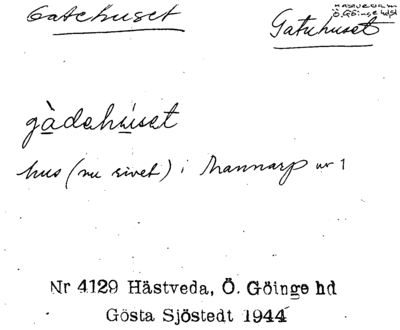 Gatehuset
HÄSTVEDA sn
Ö. Göinge hd
Gatuhuset
gàdehúset
hus (nu rivet) i Mannarp nr 1
Nr 4129 Hästveda, Ö. Göinge hd
Gösta Sjöstedt 1944